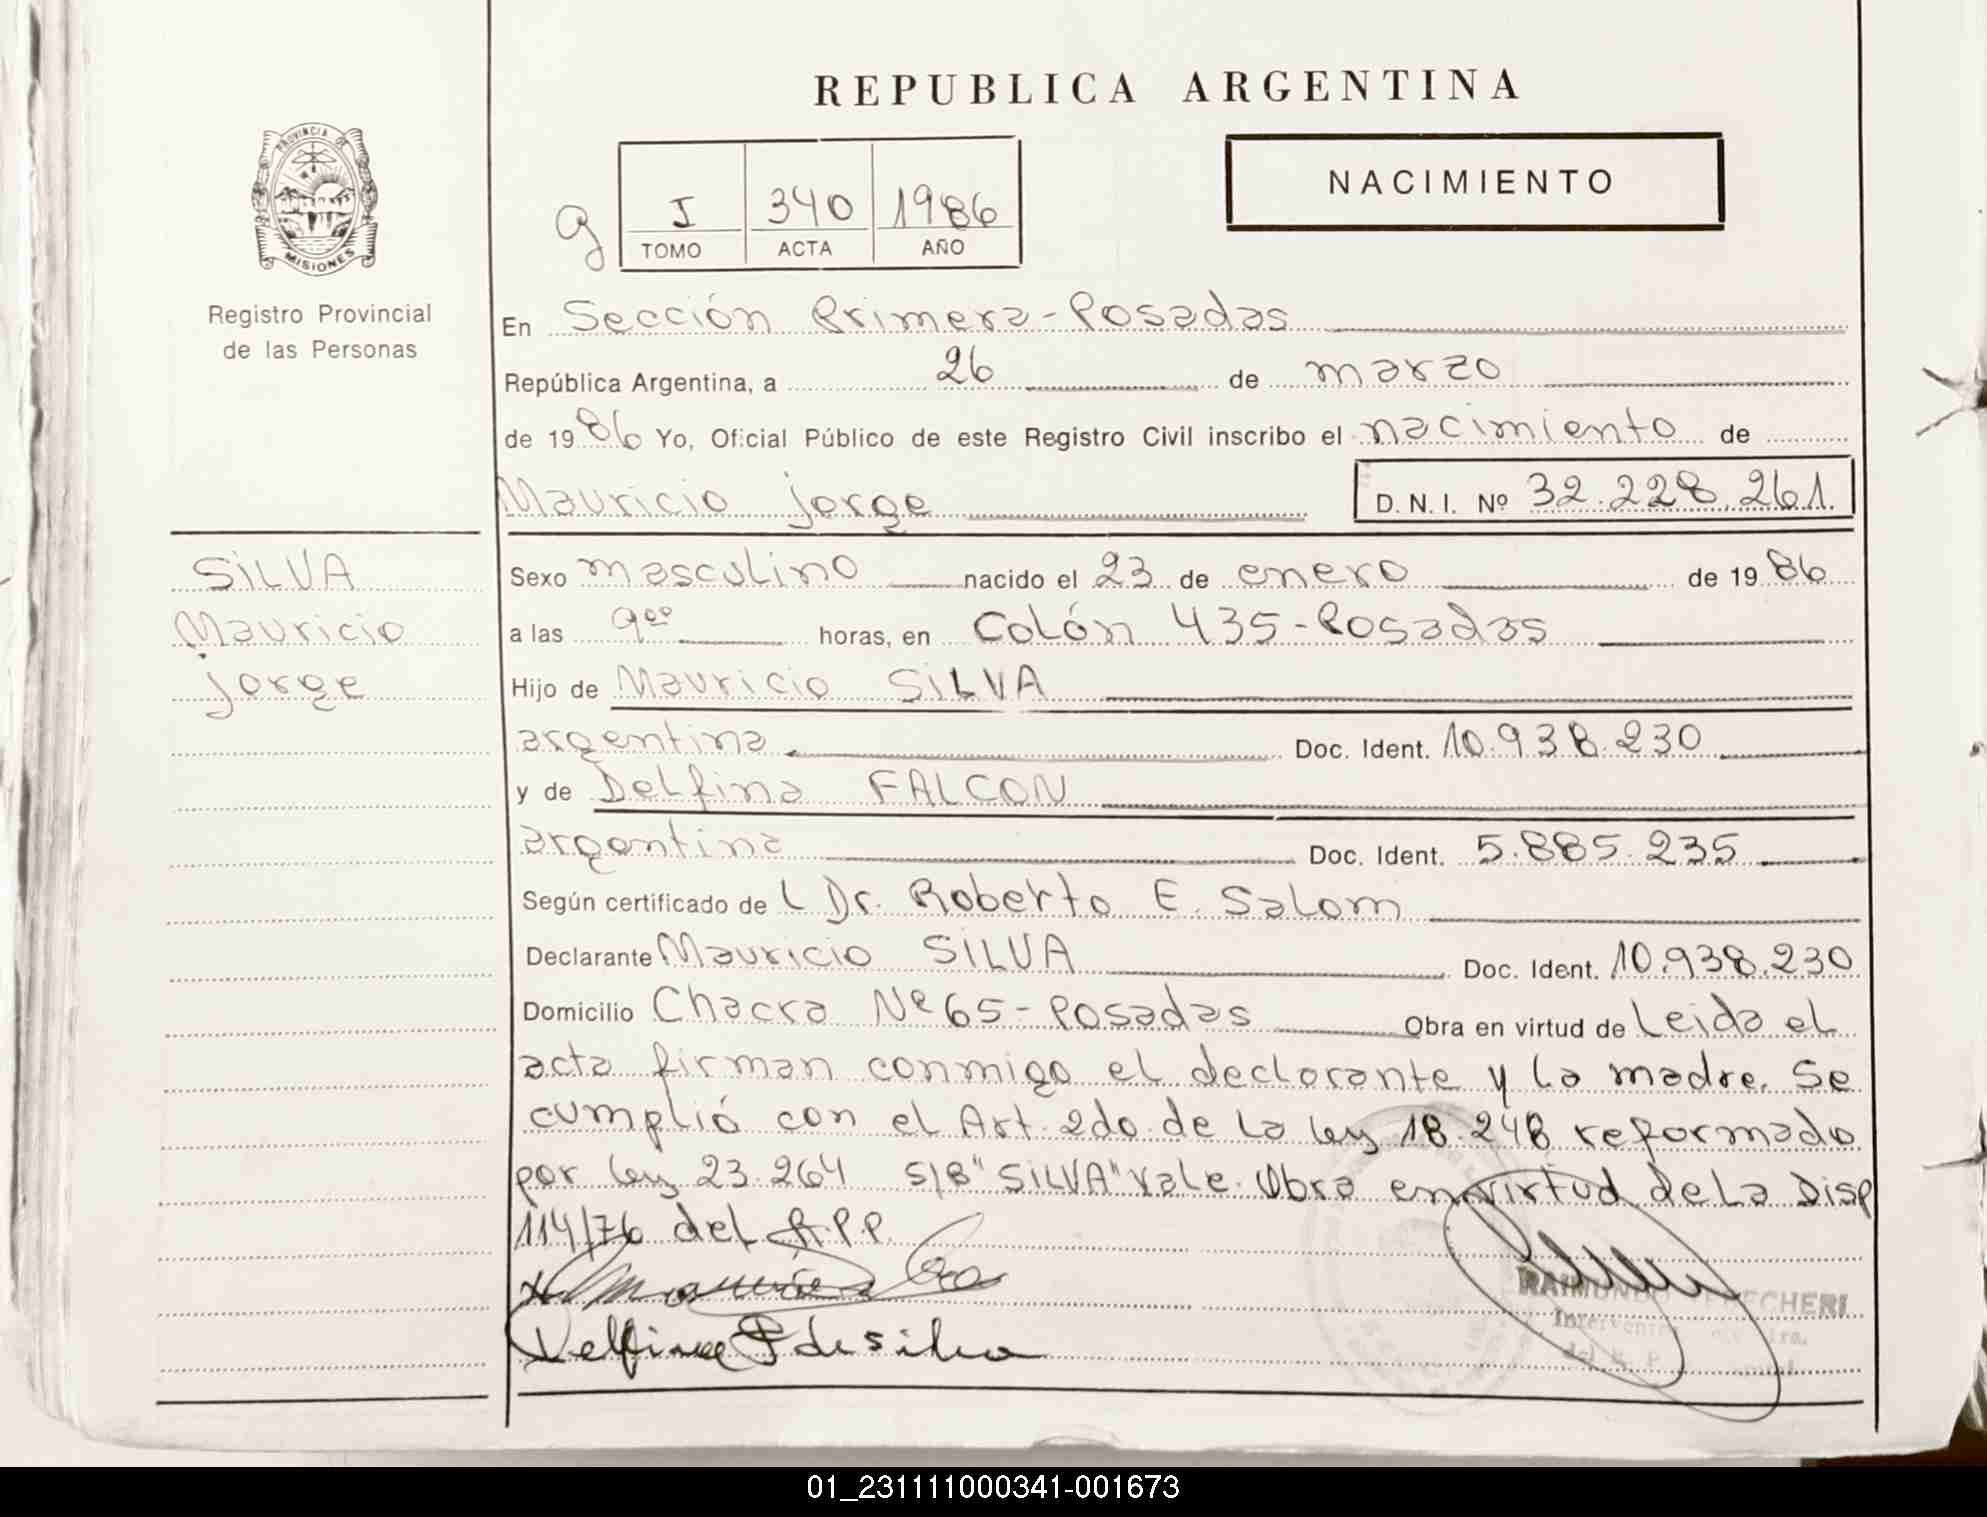 REPUBLICA ARGENTINA
PROVINCIA DE
MISIONES
Registro Provincial
de las Personas
g
I 340 1986
TOMO ACTA AÑO
NACIMIENTO
En Sección Primera - Posadas
República Argentina, a 26 de marzo
de 1986 Yo, Oficial Público de este Registro Civil inscribo el nacimiento de
Mauricio jorge D.N.I. Nº 32.228.261.
SILVA
Mauricio
jorge
Sexo masculino nacido el 23 de enero de 1986
a las 9ºº horas, en Colón 435 - Posadas
Hijo de Mauricio SILVA
argentina Doc. Ident. 10.938.230
y de Delfina FALCON
argentina Doc. Ident. 5.885.235
Según certificado de L Dr. Roberto E. Salom
Declarante Mauricio SILVA Doc. Ident. 10.938.230
Domicilio Chacra Nº 65 - Posadas Obra en virtud de Leida el
acta firman conmigo el declarante y la madre. Se
cumplió con el Art. 2do. de la ley 18.248 reformado
por ley 23.264 S/B "SILVA" Vale. Obra en virtud de La Disp
114/76 del R.P.P.
Delfina F de silva
RAIMUNDO
01_231111000341-001673